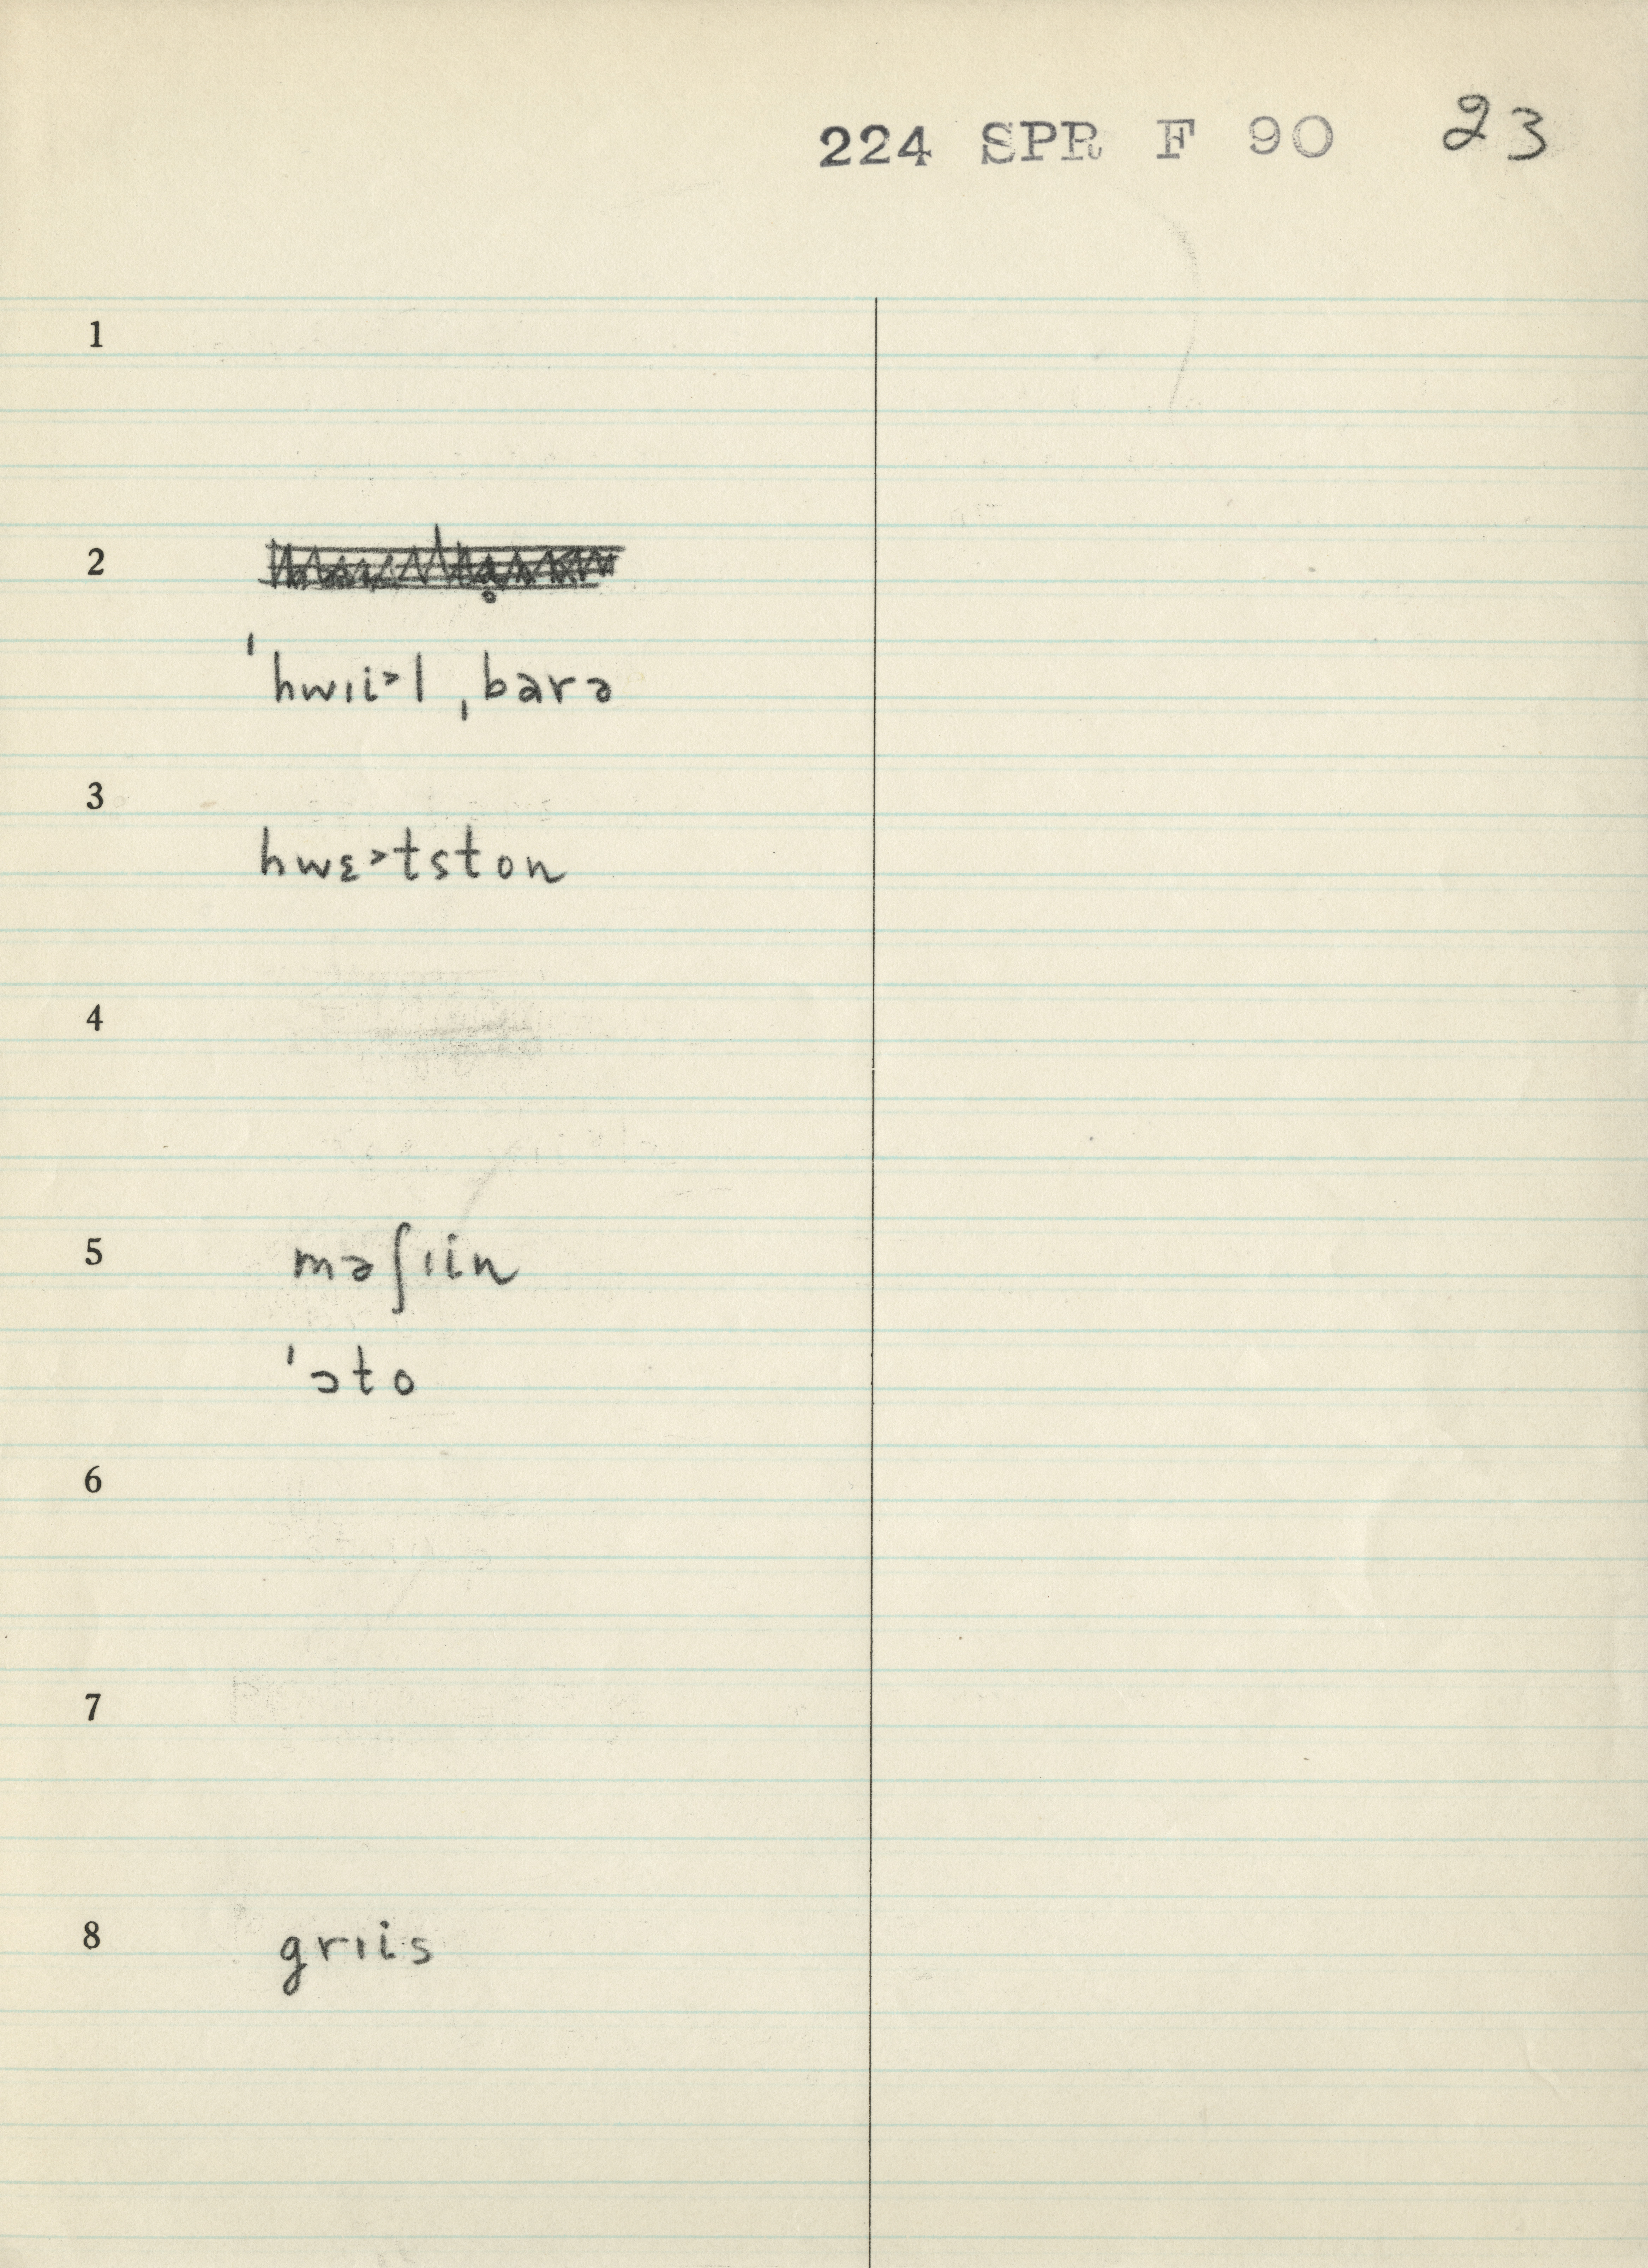 224 SPR F 90 23
1
2
ˈhwɪi˃l ˌbarə
3
hwɛ˃tston
4
5
məʃɪin
ˈɔto
6
7
8
grɪis